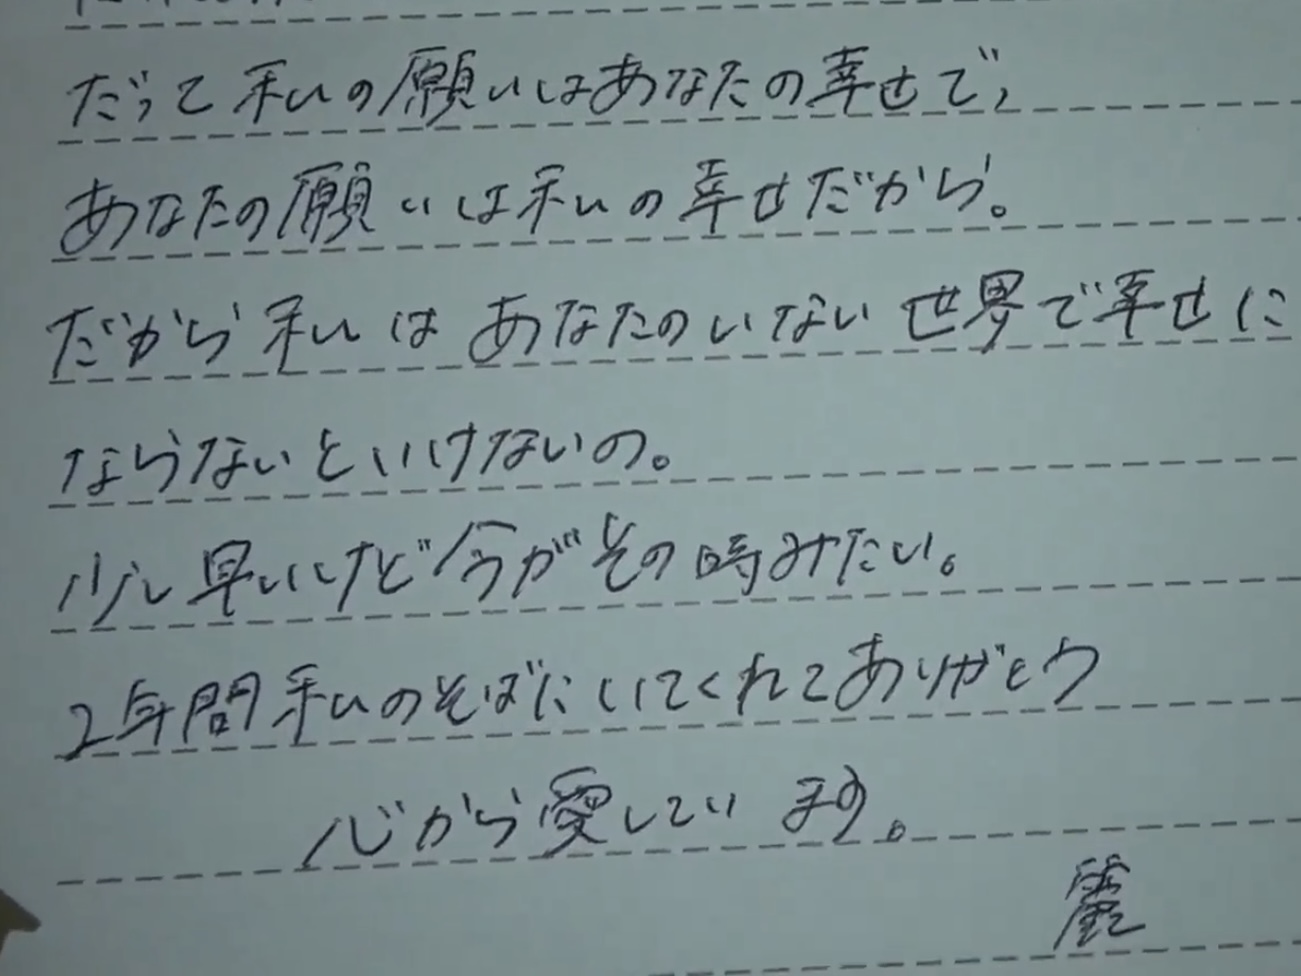 だって私の願いはあなたの幸せで、
あなたの願いは私の幸せだから。
だから私はあなたのいない世界で幸せに
ならないといけないの。
少し早いけど今がその時みたい。
2年間私のそばにいてくれてありがとう
心から愛しています。
麗